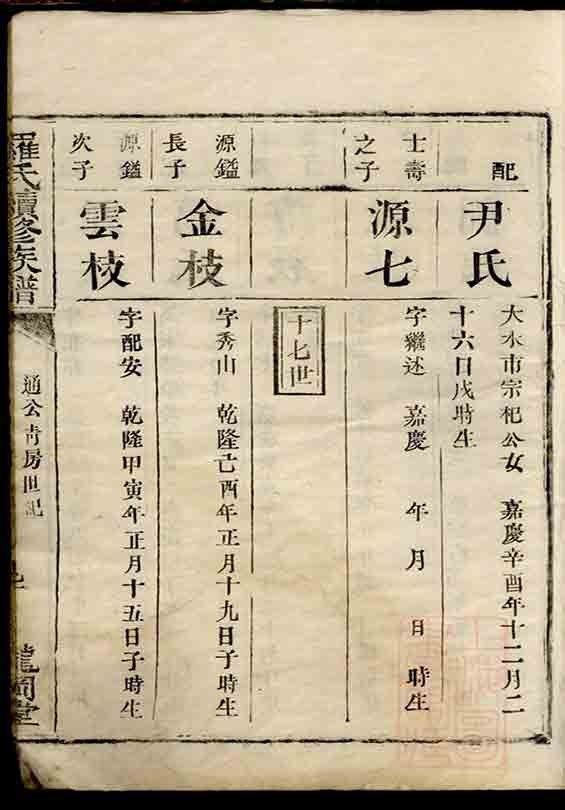 配
尹氏
大水市宗杞公女 嘉慶辛酉年十二月二
十六日戌時生
士壽
之子
源七
字繼述 嘉慶 年 月 日 時生
十七世
源鎰
長子
金枝
字秀山 乾隆己酉年正月十九日子時生
源鎰
次子
雲枝
字配安 乾隆甲寅年正月十五日子時生
羅氏續修族譜
通公 房世紀